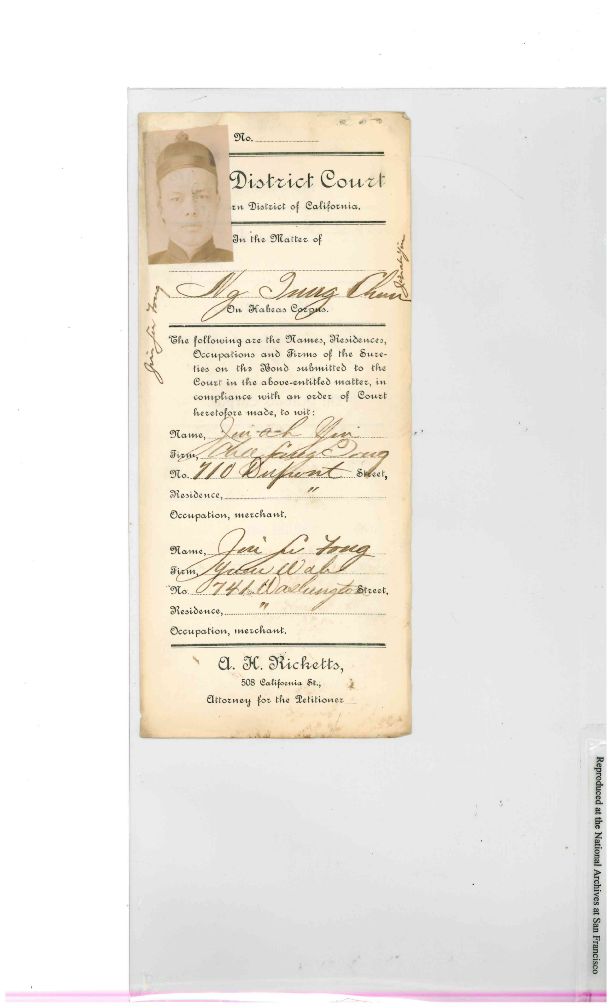 No.
District Court
rn District of California.
In the Matter of
Ng Tung Chin
On Habeas Corpus.
The following are the Names, Residences,
Occupations and Firms of the Sure-
ties on the Bond submitted to the
Court in the above-entitled matter, in
compliance with an order of Court
heretofore made, to wit:
Name, Jin ach Yin
Firm,
No. 710 Dupont Street,
Residence, "
Occupation, merchant.
Name, Jin Li Fong
Firm, Yuen Wah
No. 741 Washington Street,
Residence, "
Occupation, merchant.
A. H. Ricketts,
508 California St.,
Attorney for the Petitioner
Jin Li Fong
Reproduced at the National Archives at San Francisco